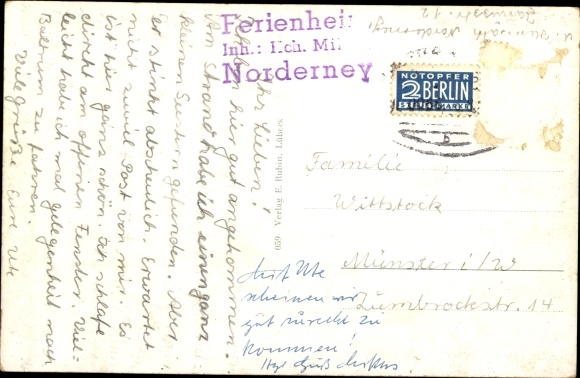 Ferienhei
Inh.: Hch. Mi
Norderney
NOTOPFER
2 BERLIN
STEUERMARKE
Ihr Lieben!
hier gut angekommen.
Am Strand habe ich einen ganz
kleinen Seestern gefunden. Aber
er stinkt abscheulich. Erwartet
nicht zuviel Post von mir. Es
ist hier ganz schön. Ich schlafe
direkt am offenen Fenster. Viel-
leicht habe ich mal gelegenheit nach
Baltrum zu fahren.
Viele grüße Eure Ute
059 Verlag E. Rubin, Lübeck
Familie
Wittstock
Münster i/W
Zumbrockstr. 14
Mit Ute
scheinen wir
gut zurecht zu
kommen!
Hzl Gruß